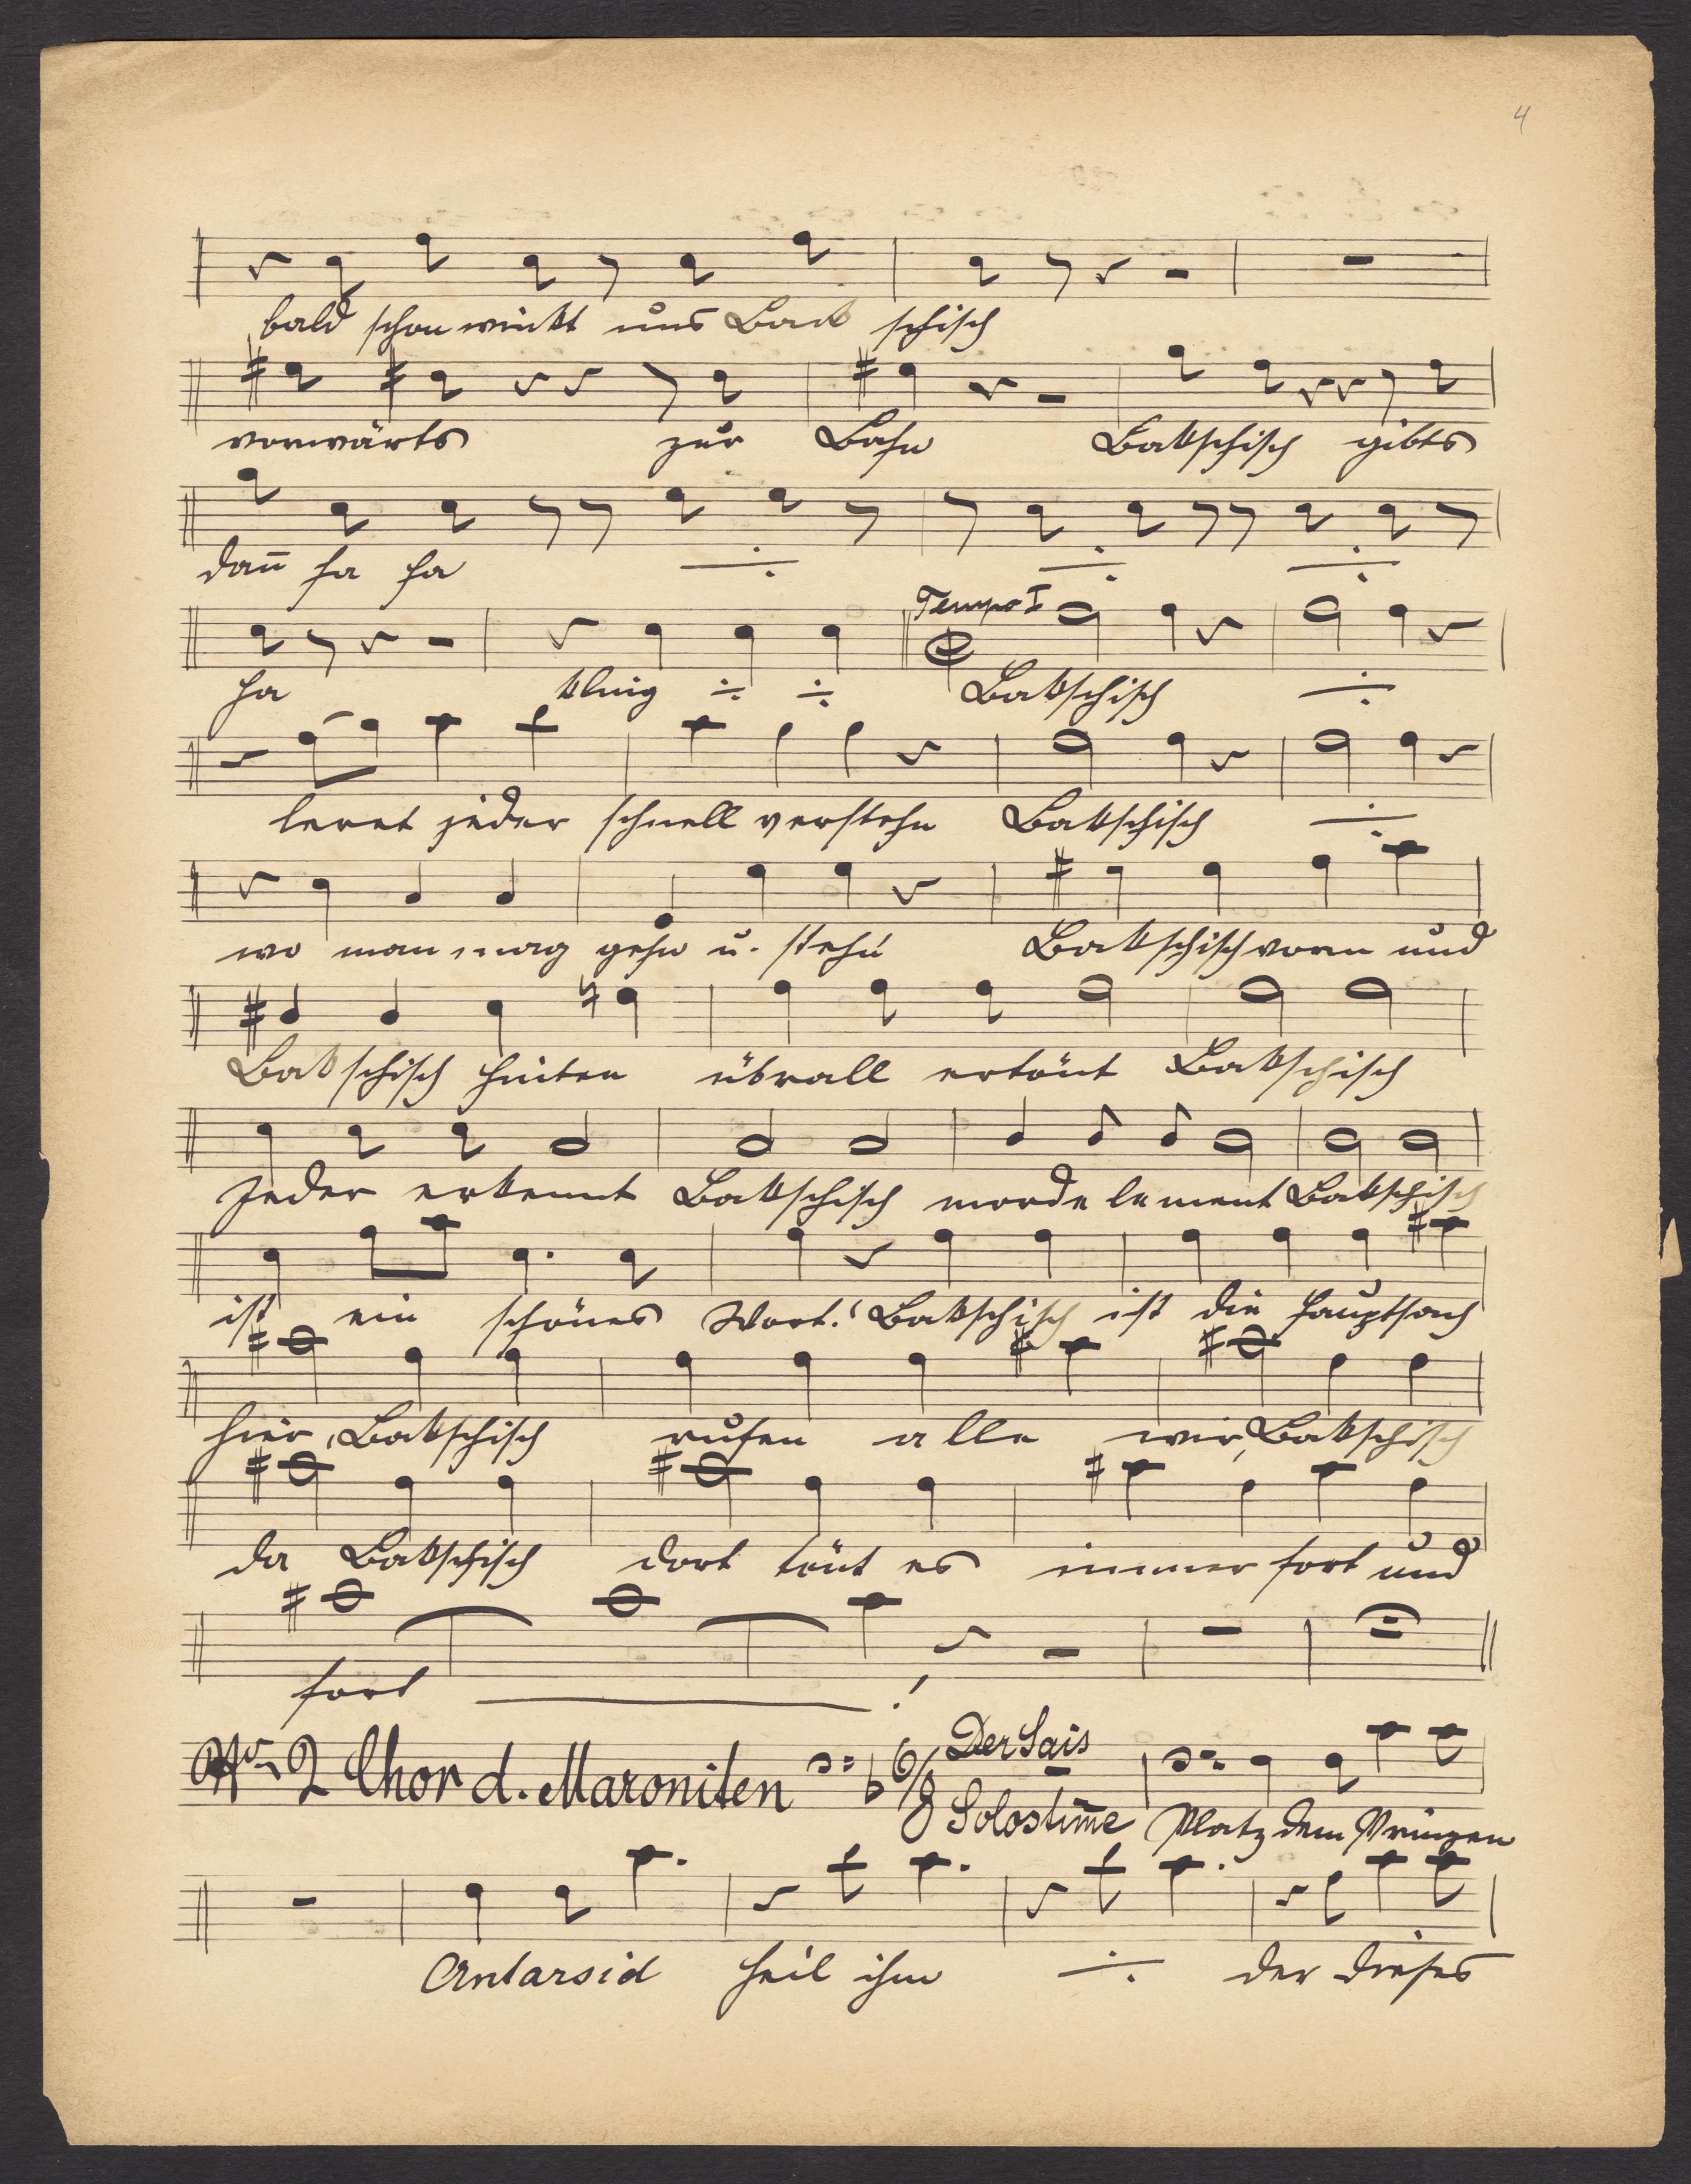 4
bald schon winkt uns Back schisch
vorwärts zur Bahn Bakschisch gibts
dan̄ ha ha ·/.
ha kling ·/. ·/. Tempo I Bakschisch ·/.
lernt jeder schnell verstehn Bakschisch ·/.
wo man mag gehn u. stehn Bakschisch vorn und
Bakschisch hinten übrall ertönt Bakschisch
Jeder erkennt Bakschisch mordelement Bakschisch
ist ein schönes Wort! Bakschisch ist die Hauptsach
hier, Bakschisch rufen alle wir, Bakschisch
da Bakschisch dort tönt es immer fort und
fort !
No 2 Chor d. Maroniten 6/8 Der Sais
Solostim̄e Platz dem Prinzen
Antarsid Heil ihm ·/. der dieses